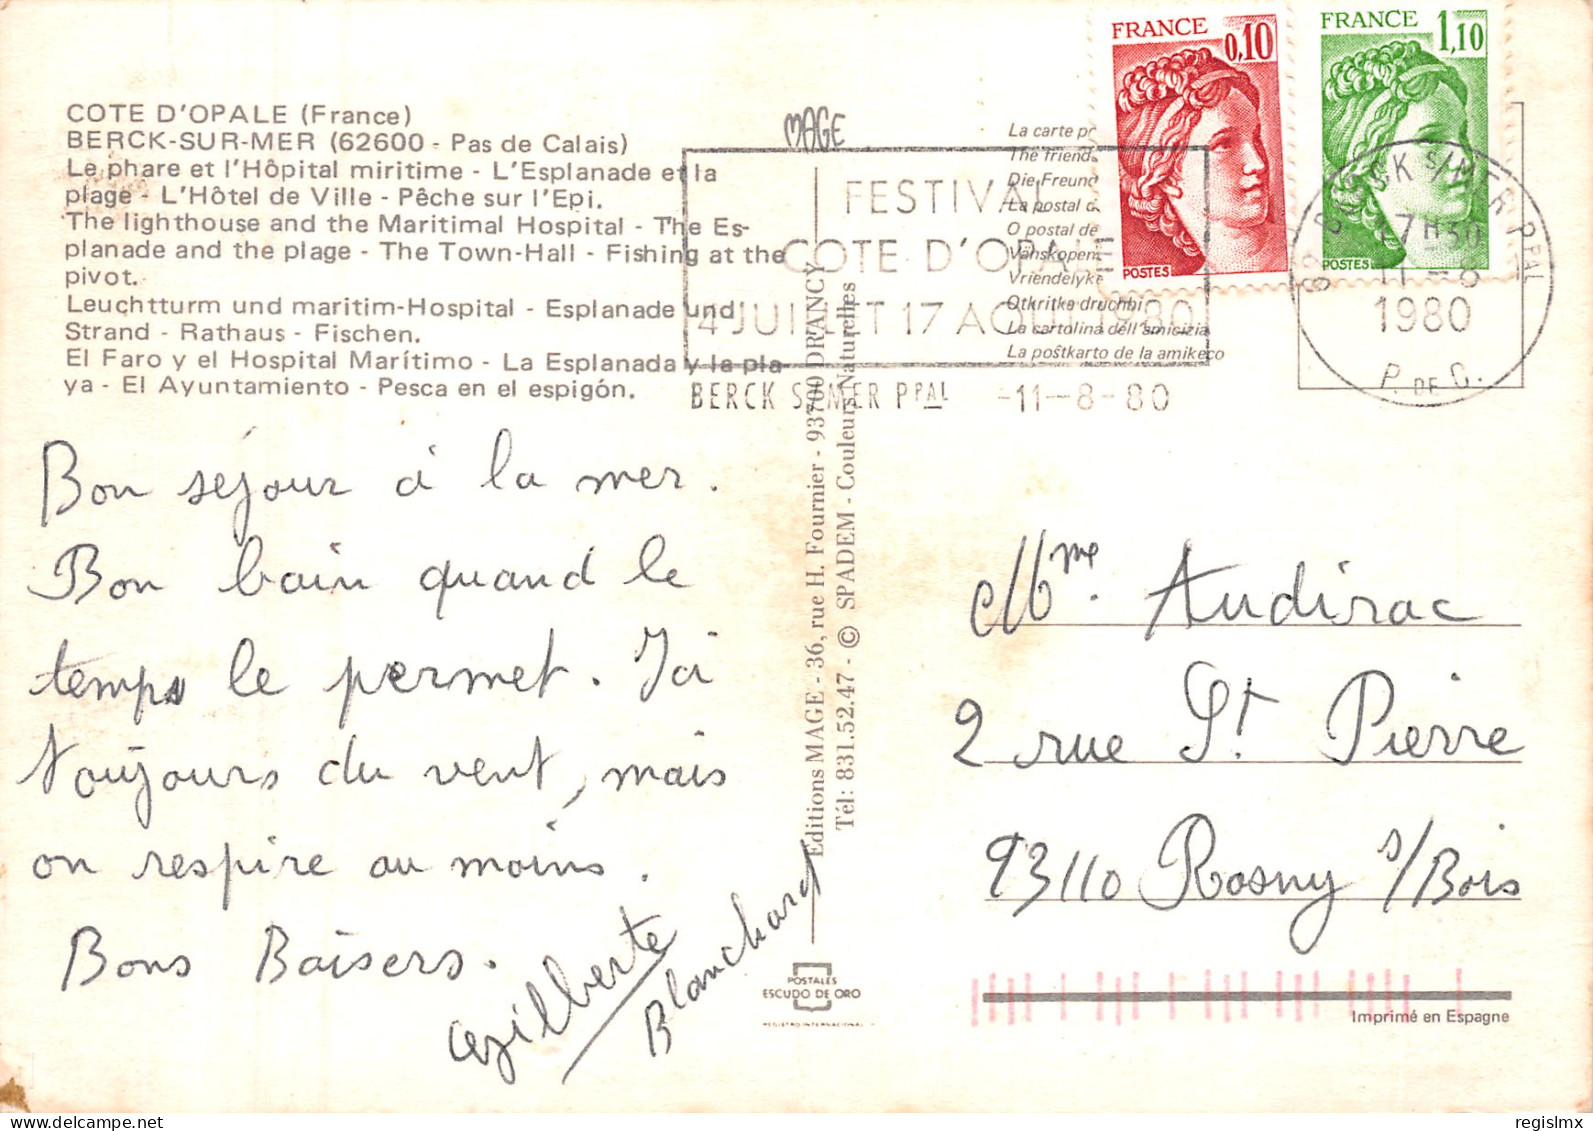 COTE D'OPALE (France)
BERCK-SUR-MER (62600 - Pas de Calais)
Le phare et l'Hôpital miritime - L'Esplanade et la
plage - L'Hôtel de Ville - Pêche sur l'Epi.
The lighthouse and the Maritimal Hospital - The Es-
planade and the plage - The Town-Hall - Fishing at the
pivot.
Leuchtturm und maritim-Hospital - Esplanade und
Strand - Rathaus - Fischen.
El Faro y el Hospital Marítimo - La Esplanada y la pla-
ya - El Ayuntamiento - Pesca en el espigón.
MAGE
La carte
The friend
Die Freund
La postal
O postal de
Vänskopen
Vriendelyke
Otkritka druchbi
La cartolina dell'amicizia
La poŝtkarto de la amikeco
FESTIVA
COTE D'OPALE
4 JUILLET 17 AOUT 1980
BERCK S/MER PPAL -11-8-80
FRANCE 0,10
POSTES
FRANCE 1,10
POSTES
62 BERCK S/MER PPAL
17H30
11-8
1980
P. DE C.
Bon séjour à la mer.
Bon bain quand le
temps le permet. Ici
toujours du vent, mais
on respire au moins.
Bons Baisers.
Gilberte
Blanchard
Editions MAGE - 36, rue H. Fournier - 93700 DRANCY
Tél: 831.52.47 - © SPADEM - Couleurs Naturelles
POSTALES
ESCUDO DE ORO
REGISTRO INTERNACIONAL
Mme. Audirac
2 rue St. Pierre
93110 Rosny s/Bois
Imprimé en Espagne
regislmx